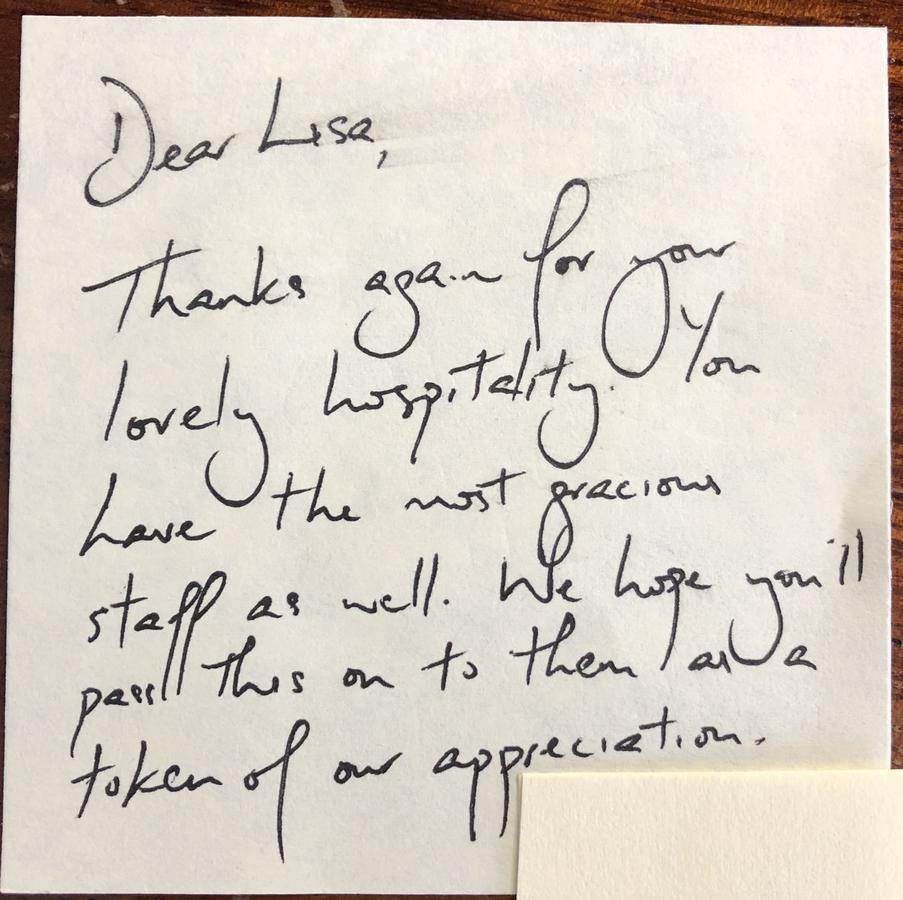 Dear Lisa,
Thanks again for your
lovely hospitality. You
have the most gracious
staff as well. We hope you'll
pass this on to them as a
token of our appreciation.